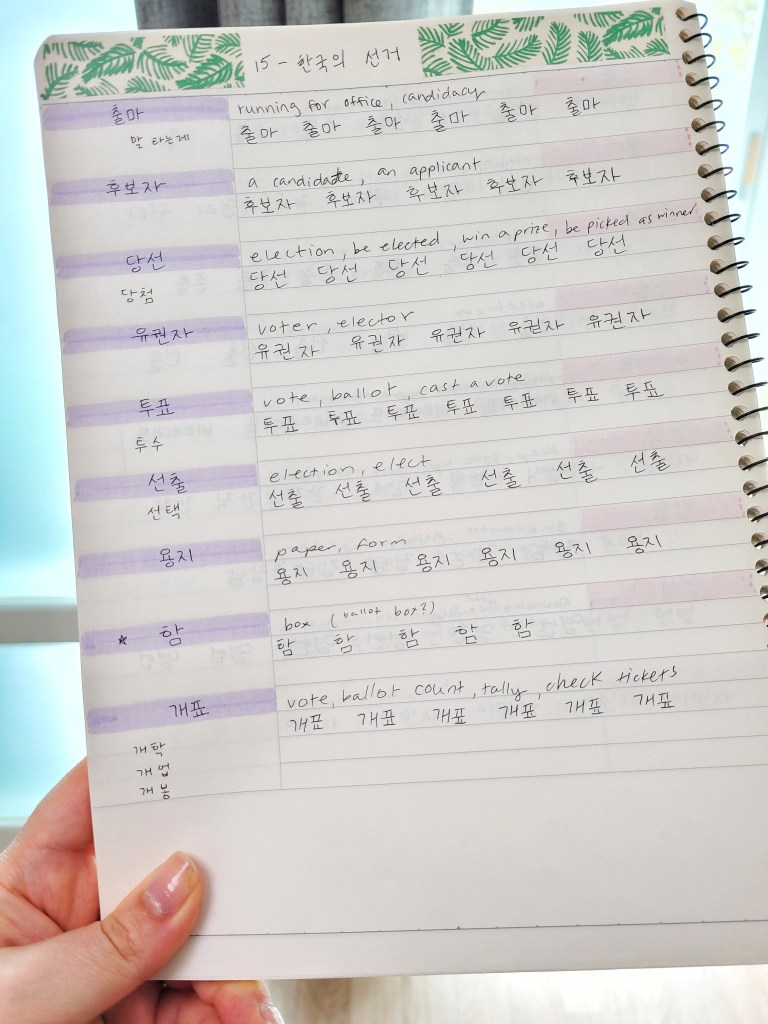 15 - 한국의 선거
출마
running for office, candidacy
말 타는게
출마 출마 출마 출마 출마 출마
후보자
a candidate, an applicant
후보자 후보자 후보자 후보자 후보자
당선
election, be elected, win a prize, be picked as winner
당첨
당선 당선 당선 당선 당선 당선
유권자
voter, elector
유권자 유권자 유권자 유권자 유권자
투표
vote, ballot, cast a vote
투수
투표 투표 투표 투표 투표 투표 투표
선출
election, elect
선택
선출 선출 선출 선출 선출 선출
용지
paper, form
용지 용지 용지 용지 용지 용지
* 함
box (ballot box?)
함 함 함 함 함
개표
vote, ballot count, tally, check tickets
개표 개표 개표 개표 개표 개표
개학
개업
개봉